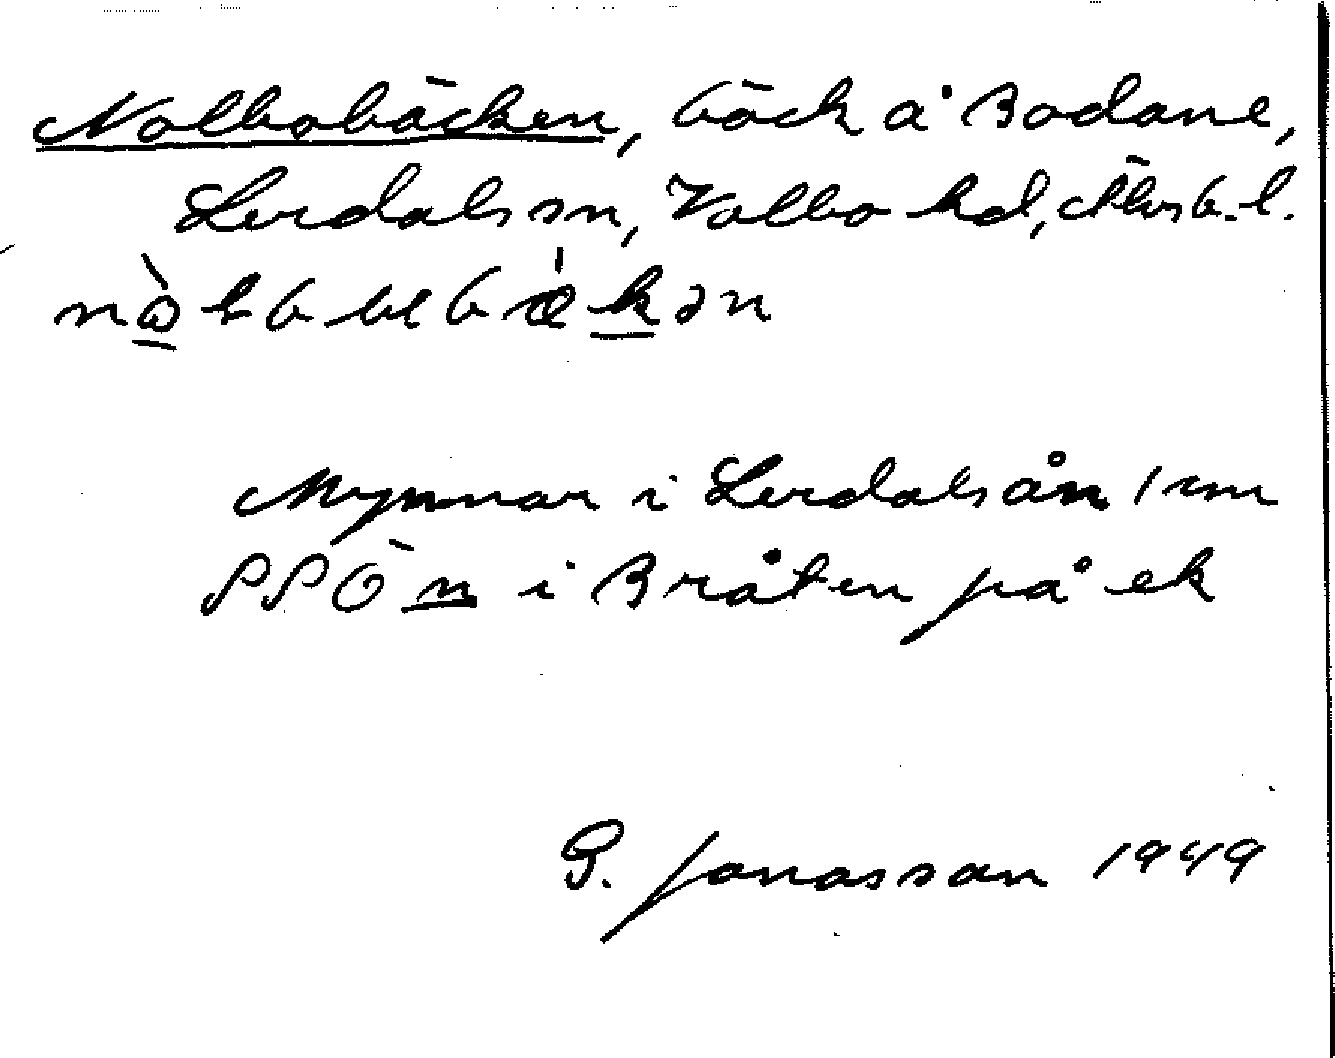 Nolbobäcken, bäck å Bodane,
Lerdals sn, Valbo hd, Älvsb. l.
Mynnar i Lerdalsån 1 km
SSÖ n i Bråten på ek
G. Jonasson 1949